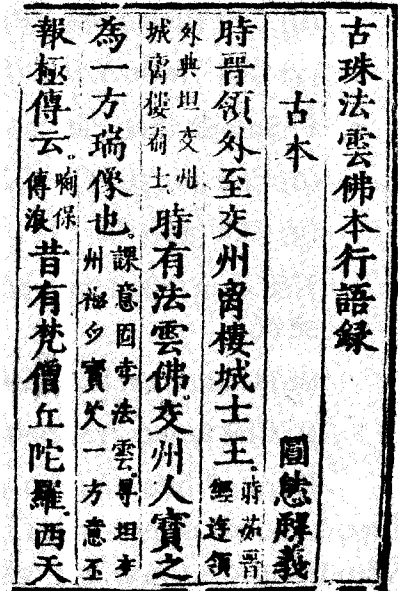 古珠法雲佛本行語録
古本 圓態觧義
時晋領外至交州啇樓城士王。時茹晋迻領
外典坦交州城啇樓士時有法雲佛。交州人寳之
為一方瑞像也。課意固孛法雲。㝵坦交州寳一方意丕
報極傳云。保傳浪昔有梵僧丘陀羅。西天